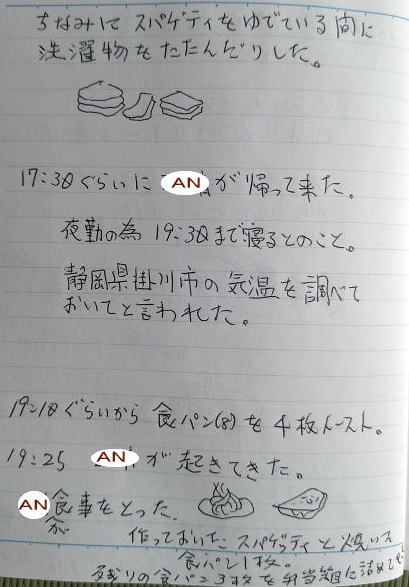 ちなみに スパゲティをゆでている間に
洗濯物をたたんだりした。
17:30ぐらいに AN が帰って来た。
夜勤の為 19:30まで寝るとのこと。
静岡県掛川市の気温を調べて
おいてと言われた。
19:10ぐらいから 食パン(8)を 4枚トースト。
19:25 AN が起きてきた。
AN 食事をとった
が
作っておいた スパゲッティと焼いた
食パン1枚。
残りの食パン3枚を弁当箱に詰めて